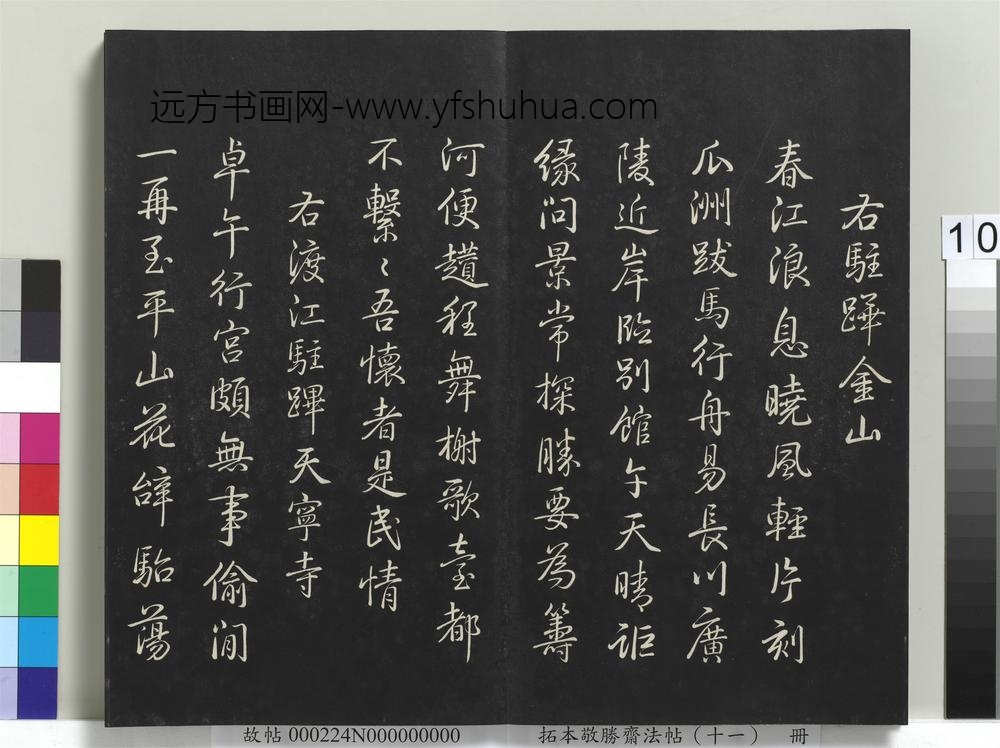 远方书画网-www.yfshuhua.com
右駐蹕金山
春江浪息曉風輕片刻
瓜洲跋馬行舟易長川廣
陵近岸臨別館午天晴詎
緣問景常探勝要為籌
河便趲程舞榭歌臺都
不繫〻吾懷者是民情
右渡江駐蹕天寧寺
卓午行宮頗無事偷閒
一再至平山花辭駘蕩
10
故帖 000224N000000000
拓本敬勝齋法帖（十一） 冊